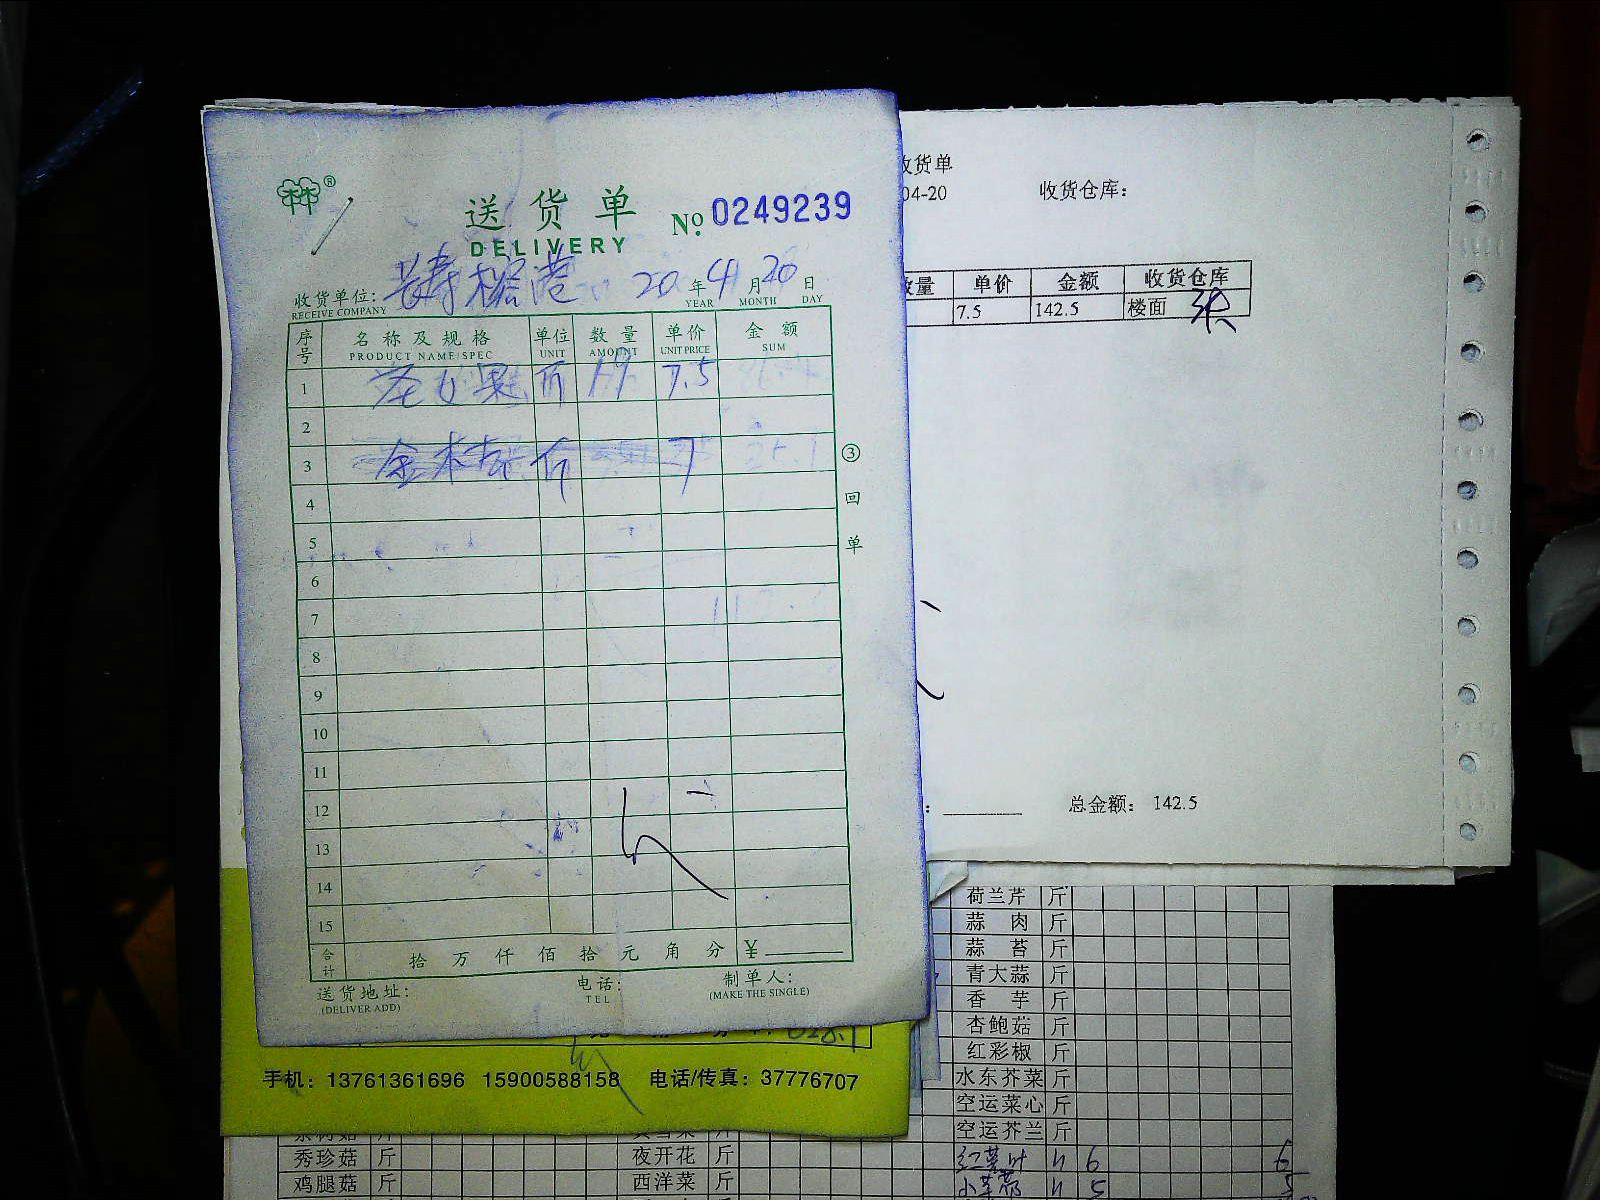 送货单 №0249239
DELIVERY
收货单位: 20 年 4 月 20 日
RECEIVE COMPANY YEAR MONTH DAY
序号 名称及规格 单位 数量 单价 金额
PRODUCT NAME/SPEC UNIT AMOUNT UNIT PRICE SUM
1 圣女果 斤 7.5
2
3 斤 7
4
5
6
7
8
9
10
11
12
13
14
15
合计 拾 万 仟 佰 拾 元 角 分 ¥
送货地址: 电话: 制单人:
(DELIVER ADD) TEL (MAKE THE SINGLE)
③回单
收货单
04-20 收货仓库:
数量 单价 金额 收货仓库
7.5 142.5 楼面
总金额: 142.5
手机: 13761361696 15900588158 电话/传真: 37776707
荷兰芹 斤
蒜肉 斤
蒜苔 斤
青大蒜 斤
香芋 斤
杏鲍菇 斤
红彩椒 斤
水东芥菜 斤
空运菜心 斤
空运芥兰 斤
秀珍菇 斤 夜开花 斤 6 6
鸡腿菇 斤 西洋菜 斤 5